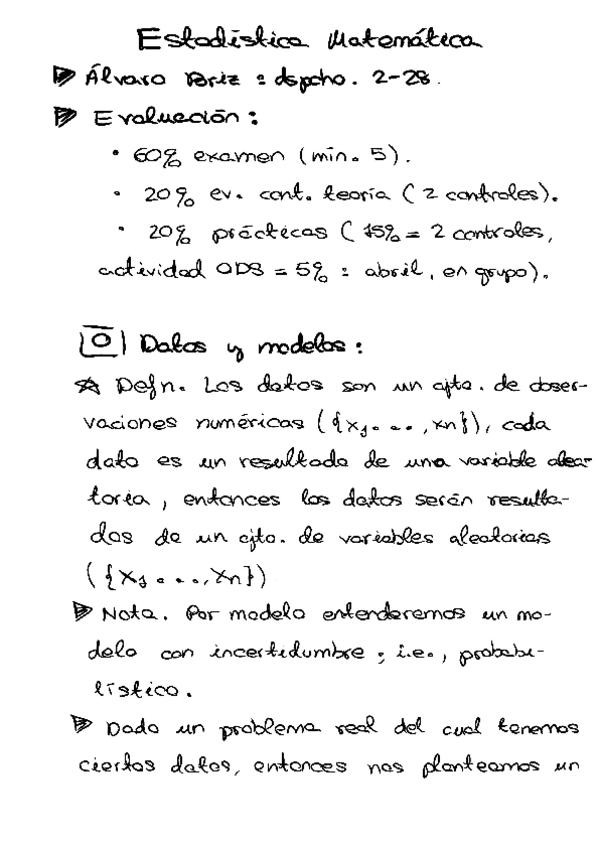 Estadística Matemática
Álvaro Briz : dspcho. 2-28.
Evaluación :
• 60% examen (mín. 5).
• 20% ev. cont. teoría (2 controles).
• 20% prácticas (15% = 2 controles,
actividad ODS = 5% : abril, en grupo).
0 Datos y modelos :
☆ Defn. Los datos son un cjto. de obser-
vaciones numéricas ({x1, ..., xn}), cada
dato es un resultado de una variable alea-
toria, entonces los datos serán resulta-
dos de un cjto. de variables aleatorias
({X1, ..., Xn})
Nota. Por modelo entenderemos un mo-
delo con incertidumbre ; i.e., probabi-
lístico.
Dado un problema real del cual tenemos
ciertos datos, entonces nos planteamos un